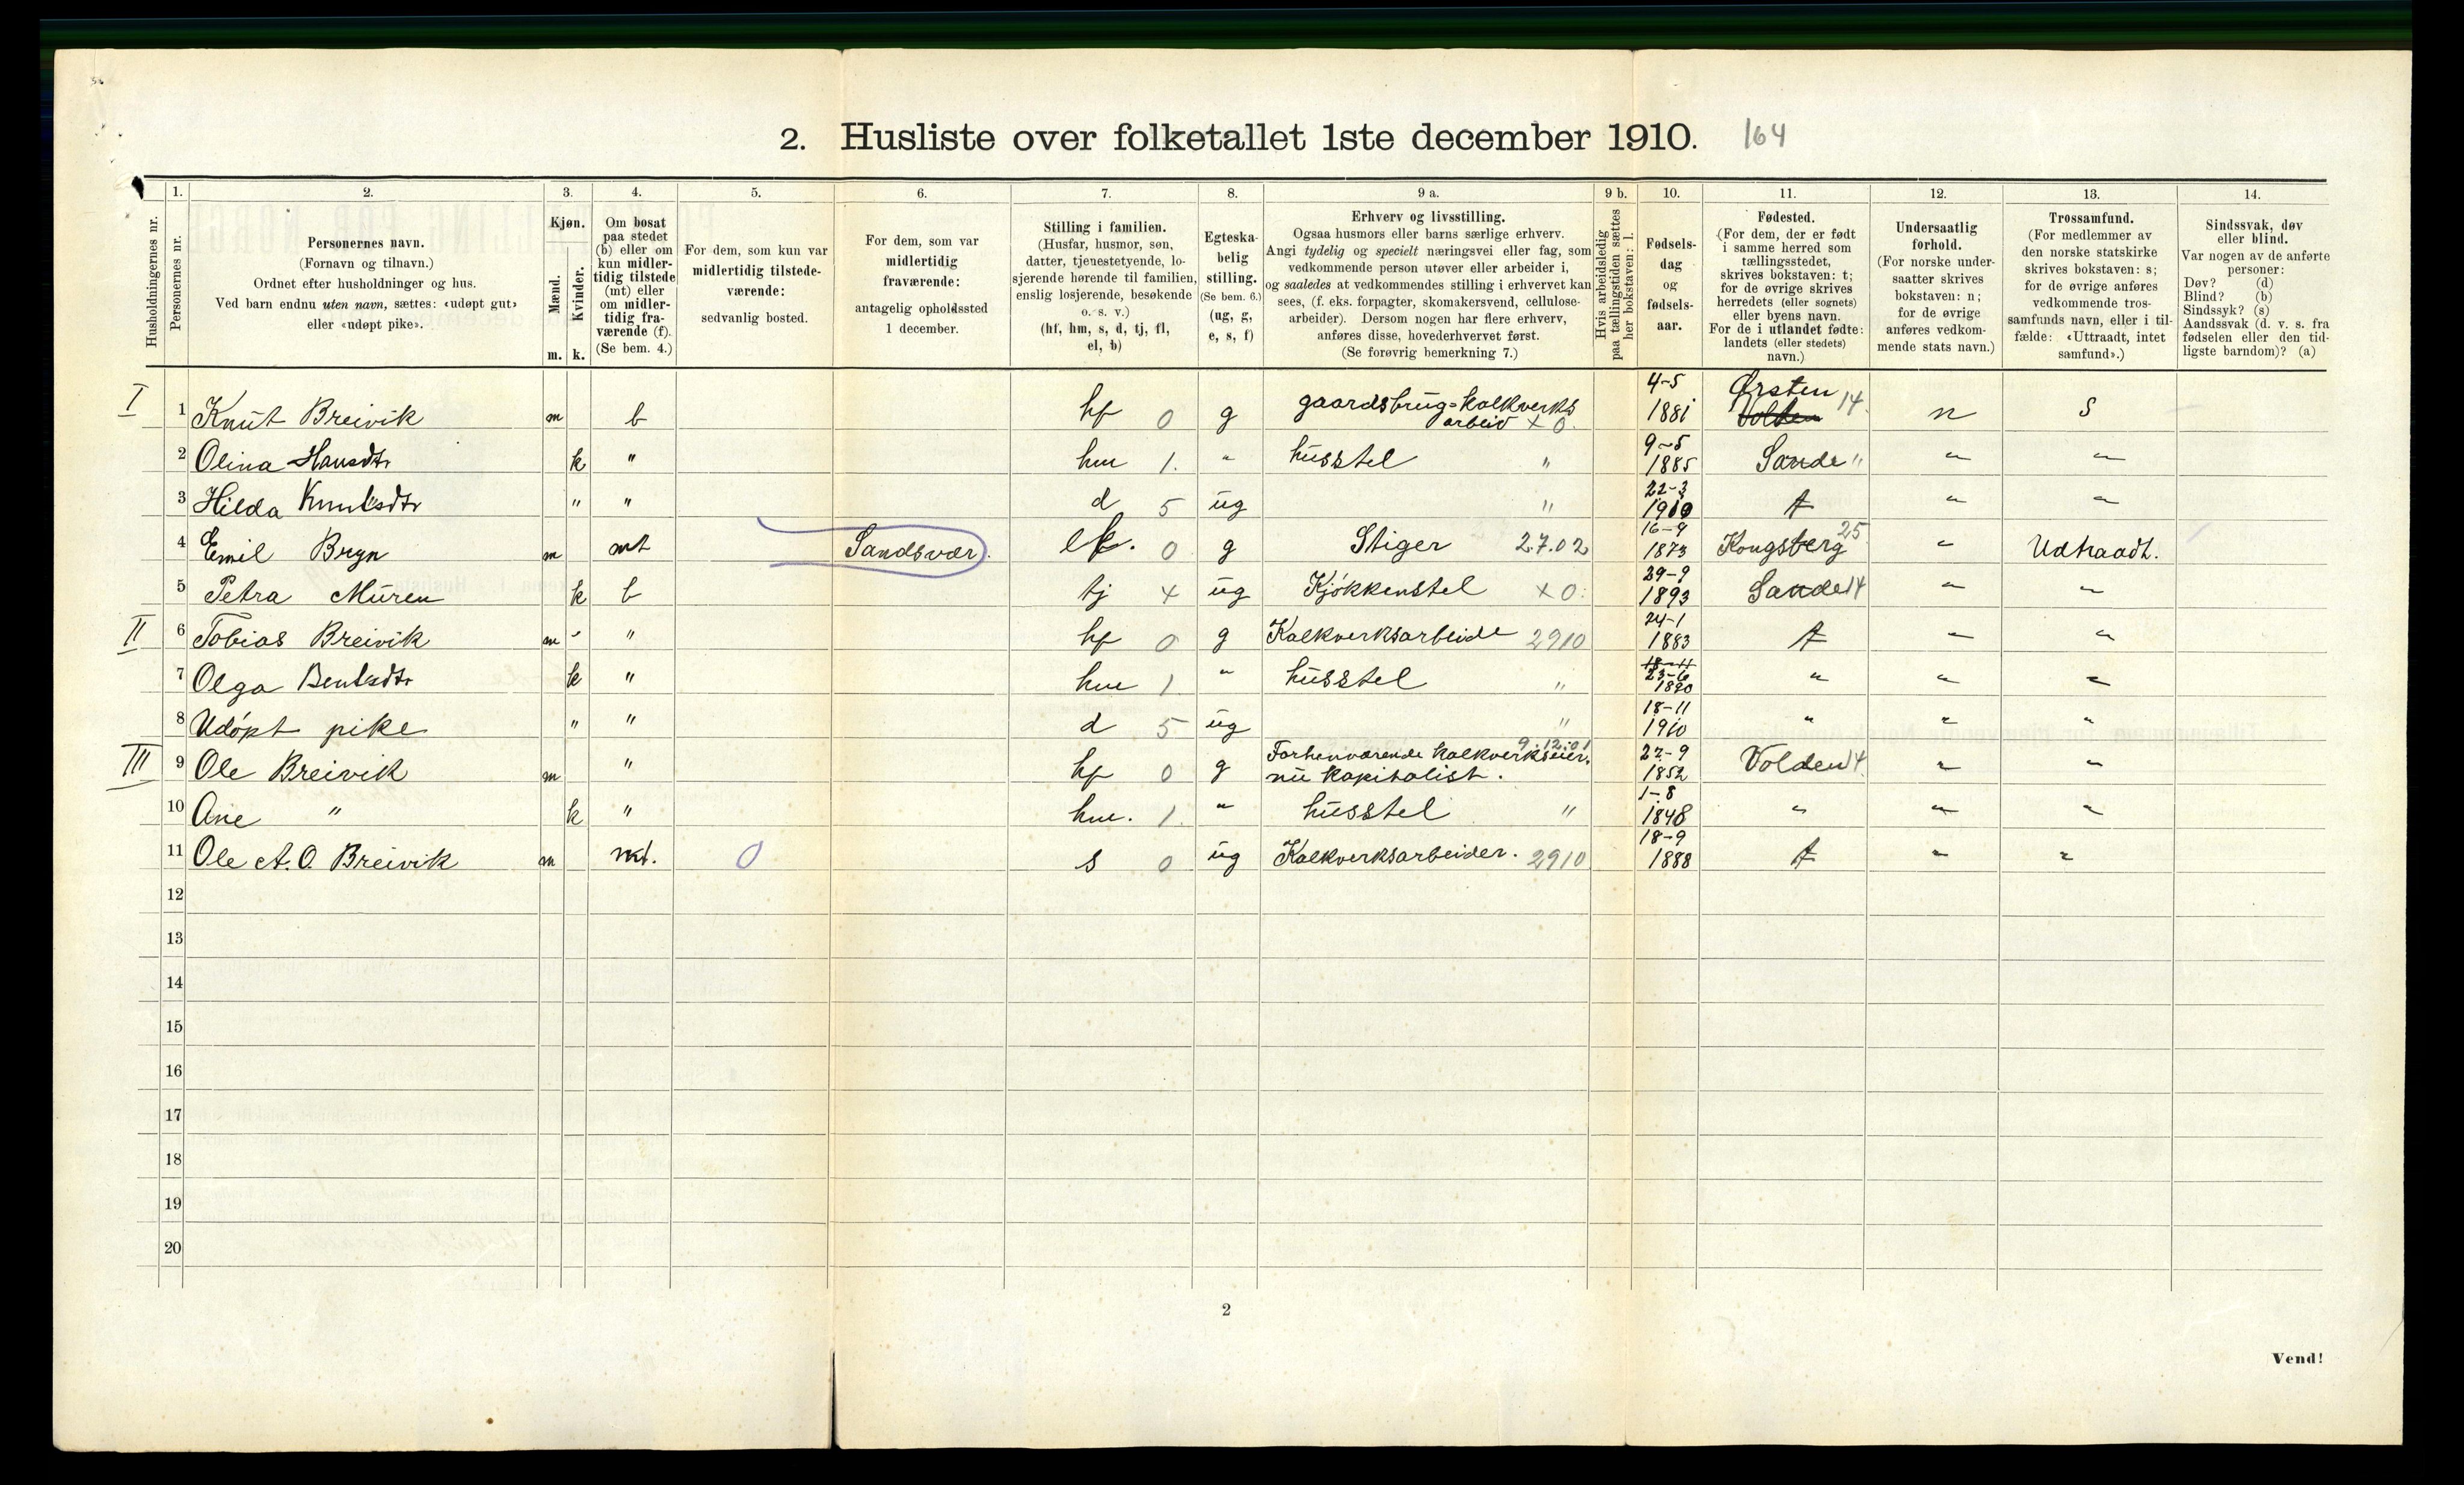 2. Husliste over folketallet 1ste december 1910. 164
Husholdningernes nr.
1.
Personernes nr.
2.
Personernes navn.
(Fornavn og tilnavn.)
Ordnet efter husholdninger og hus.
Ved barn endnu uten navn, sættes: «udøpt gut»
eller «udøpt pike».
3.
Kjøn.
Mænd.
Kvinder.
m. k.
4.
Om bosat
paa stedet
(b) eller om
kun midler-
tidig tilstede
(mt) eller
om midler-
tidig fra-
værende (f).
(Se bem. 4.)
5.
For dem, som kun var
midlertidig tilstede-
værende:
sedvanlig bosted.
6.
For dem, som var
midlertidig
fraværende:
antagelig opholdssted
1 december.
7.
Stilling i familien.
(Husfar, husmor, søn,
datter, tjenestetyende, lo-
sjerende hørende til familien,
enslig losjerende, besøkende
o. s. v.)
(hf, hm, s, d, tj, fl,
el, b)
8.
Egteska-
belig
stilling.
(Se bem. 6.)
(ug, g,
e, s, f)
9 a.
Erhverv og livsstilling.
Ogsaa husmors eller barns særlige erhverv.
Angi tydelig og specielt næringsvei eller fag, som
vedkommende person utøver eller arbeider i,
og saaledes at vedkommendes stilling i erhvervet kan
sees, (f. eks. forpagter, skomakersvend, cellulose-
arbeider). Dersom nogen har flere erhverv,
anføres disse, hovederhvervet først.
(Se forøvrig bemerkning 7.)
9 b.
Hvis arbeidsledig
paa tællingstiden sættes
her bokstaven: l.
10.
Fødsels-
dag
og
fødsels-
aar.
11.
Fødested.
(For dem, der er født
i samme herred som
tællingsstedet,
skrives bokstaven: t;
for de øvrige skrives
herredets (eller sognets)
eller byens navn.
For de i utlandet fødte:
landets (eller stedets)
navn.)
12.
Undersaatlig
forhold.
(For norske under-
saatter skrives
bokstaven: n;
for de øvrige
anføres vedkom-
mende stats navn.)
13.
Trossamfund.
(For medlemmer av
den norske statskirke
skrives bokstaven: s;
for de øvrige anføres
vedkommende tros-
samfunds navn, eller i til-
fælde: «Uttraadt, intet
samfund».)
14.
Sindssvak, døv
eller blind.
Var nogen av de anførte
personer:
Døv? (d)
Blind? (b)
Sindssyk? (s)
Aandssvak (d. v. s. fra
fødselen eller den tid-
ligste barndom)? (a)
I 1 Knut Breivik m b hf 0 g gaardsbrug=kalkverks arbeid x 0. 4-5 1881 Ørsten Volden 14. n S
2 Olina Hansdtr k " hm 1. " husstel " 9-5 1885 Sande " " "
3 Hilda Knutsdtr " " d 5 ug " 22-3 1910 t " "
4 Emil Bryn m mt Sandsvær. 0 g Stiger 27.02 16-9 1873 Kongsberg 25 " Udtraadt.
5 Petra Muren k b tj 4 ug Kjøkkenstel x 0: 29-9 1893 Sande 14 " "
II 6 Tobias Breivik m " " hf 0 g Kalkverksarbeide 2910 24-1 1883 t " "
7 Olga Bentsdtr k " hm 1 " husstel " 18-11 23-6 1890 " " "
8 Udøpt pike " " d 5 ug " 18-11 1910 " " "
III 9 Ole Breivik m " hf 0 g Forhenværende kalkverkseier. nu kapitalist. 9.12.01 27-9 1852 Volden 14. " "
10 Ane " k " hm. 1. " husstel " 1-8 1848 " " "
11 Ole A. O. Breivik m mt. 0 s 0 ug Kalkverksarbeider. 2910 18-9 1888 t " "
12
13
14
15
16
17
18
19
20
2
Vend!